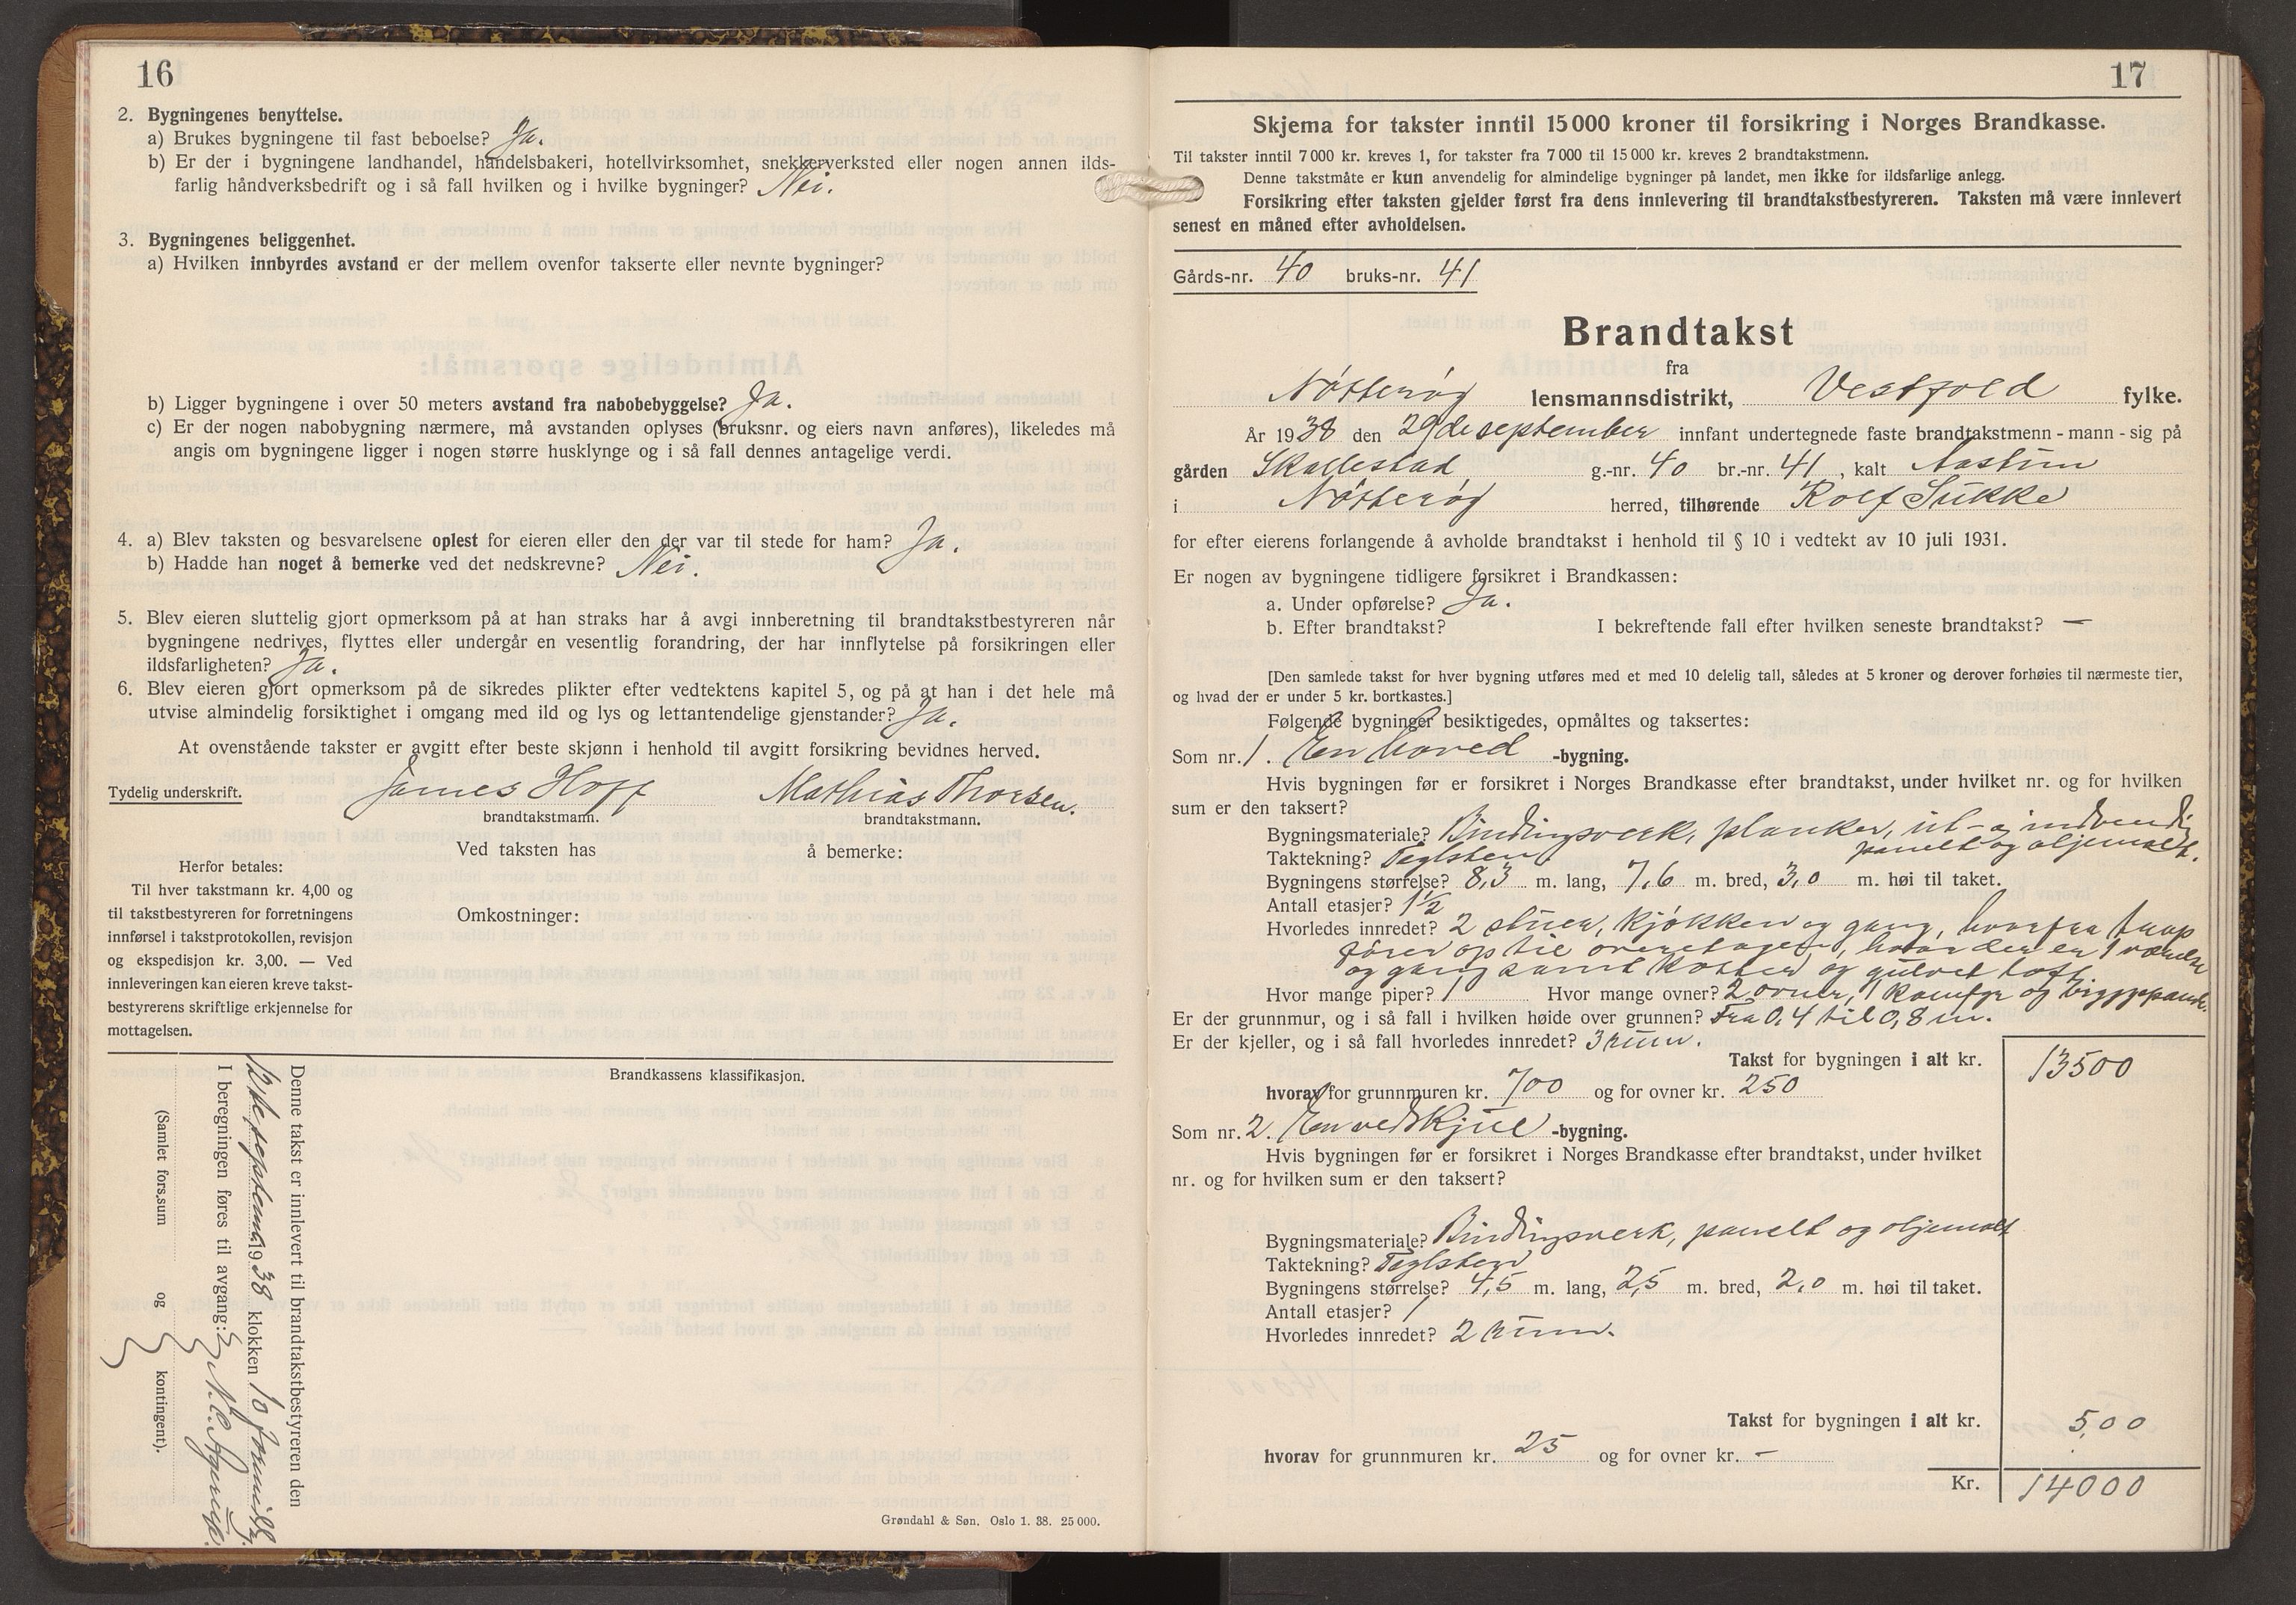 16
2. Bygningenes benyttelse.
a) Brukes bygningene til fast beboelse? Ja.
b) Er der i bygningene landhandel, handelsbakeri, hotellvirksomhet, snekkerverksted eller nogen annen ilds-
farlig håndverksbedrift og i så fall hvilken og i hvilke bygninger? Nei.
3. Bygningenes beliggenhet.
a) Hvilken innbyrdes avstand er der mellem ovenfor takserte eller nevnte bygninger?
b) Ligger bygningene i over 50 meters avstand fra nabobebyggelse? Ja.
c) Er der nogen nabobygning nærmere, må avstanden oplyses (bruksnr. og eiers navn anføres), likeledes må
angis om bygningene ligger i nogen større husklynge og i så fall dennes antagelige verdi.
4. a) Blev taksten og besvarelsene oplest for eieren eller den der var til stede for ham? Ja.
b) Hadde han noget å bemerke ved det nedskrevne? Nei.
5. Blev eieren sluttelig gjort opmerksom på at han straks har å avgi innberetning til brandtakstbestyreren når
bygningene nedrives, flyttes eller undergår en vesentlig forandring, der har innflytelse på forsikringen eller
ildsfarligheten? Ja.
6. Blev eieren gjort opmerksom på de sikredes plikter efter vedtektens kapitel 5, og på at han i det hele må
utvise almindelig forsiktighet i omgang med ild og lys og lettantendelige gjenstander? Ja.
At ovenstående takster er avgitt efter beste skjønn i henhold til avgitt forsikring bevidnes herved.
Tydelig underskrift. James Hoff Mathias Thorsen.
brandtakstmann. brandtakstmann.
Ved taksten has å bemerke:
Herfor betales:
Til hver takstmann kr. 4,00 og
til takstbestyreren for forretningens
innførsel i takstprotokollen, revisjon
og ekspedisjon kr. 3,00. — Ved
innleveringen kan eieren kreve takst-
bestyrerens skriftlige erkjennelse for
mottagelsen.
Omkostninger:
Brandkassens klassifikasjon.
Denne takst er innlevert til brandtakstbestyreren den
september 1938 klokken 10 formidd.
I beregningen føres til avgang:
(Samlet fors.sum og kontingent).
Grøndahl & Søn. Oslo 1. 38. 25 000.
17
Skjema for takster inntil 15 000 kroner til forsikring i Norges Brandkasse.
Til takster inntil 7 000 kr. kreves 1, for takster fra 7 000 til 15 000 kr. kreves 2 brandtakstmenn.
Denne takstmåte er kun anvendelig for almindelige bygninger på landet, men ikke for ildsfarlige anlegg.
Forsikring efter taksten gjelder først fra dens innlevering til brandtakstbestyreren. Taksten må være innlevert
senest en måned efter avholdelsen.
Gårds-nr. 40 bruks-nr. 41
Brandtakst
fra
Nøtterøy lensmannsdistrikt, Vestfold fylke.
År 1938 den 29de september innfant undertegnede faste brandtakstmenn - mann - sig på
gården Skallestad g.-nr. 40 br.-nr. 41, kalt Aastun
i Nøtterøy herred, tilhørende Rolf Sukke
for efter eierens forlangende å avholde brandtakst i henhold til § 10 i vedtekt av 10 juli 1931.
Er nogen av bygningene tidligere forsikret i Brandkassen:
a. Under opførelse? Ja.
b. Efter brandtakst? I bekreftende fall efter hvilken seneste brandtakst? —
[Den samlede takst for hver bygning utføres med et med 10 delelig tall, således at 5 kroner og derover forhøies til nærmeste tier,
og hvad der er under 5 kr. bortkastes.]
Følgende bygninger besiktigedes, opmåltes og taksertes:
Som nr. 1. En hoved -bygning.
Hvis bygningen før er forsikret i Norges Brandkasse efter brandtakst, under hvilket nr. og for hvilken
sum er den taksert?
Bygningsmateriale? Bindingsverk, planker, ut- og indvendig
panelt og oljemalt.
Taktekning? Taglsten.
Bygningens størrelse? 8,3 m. lang, 7,6 m. bred, 3,0 m. høi til taket.
Antall etasjer? 1½
Hvorledes innredet? 2 stuer, kjøkken og gang, hvorfra trap
fører op til overetagen, hvor der er 1 værelse
og gang samt kotter og gulvet loft.
Hvor mange piper? 1 Hvor mange ovner? 2 ovner, 1 komfyr og bryggepande.
Er der grunnmur, og i så fall i hvilken høide over grunnen? Fra 0,4 til 0,8 m.
Er der kjeller, og i så fall hvorledes innredet? 3 rum.
Takst for bygningen i alt kr. 13500
hvorav for grunnmuren kr. 700 og for ovner kr. 250
Som nr. 2. En vedskjul -bygning.
Hvis bygningen før er forsikret i Norges Brandkasse efter brandtakst, under hvilket
nr. og for hvilken sum er den taksert?
Bygningsmateriale? Bindingsverk, panelt og oljemalt
Taktekning? Taglsten
Bygningens størrelse? 4,5 m. lang, 2,5 m. bred, 2,0 m. høi til taket.
Antall etasjer? 1
Hvorledes innredet? 2 rum.
Takst for bygningen i alt kr. 500
hvorav for grunnmuren kr. 25 og for ovner kr. —
Kr. 14000